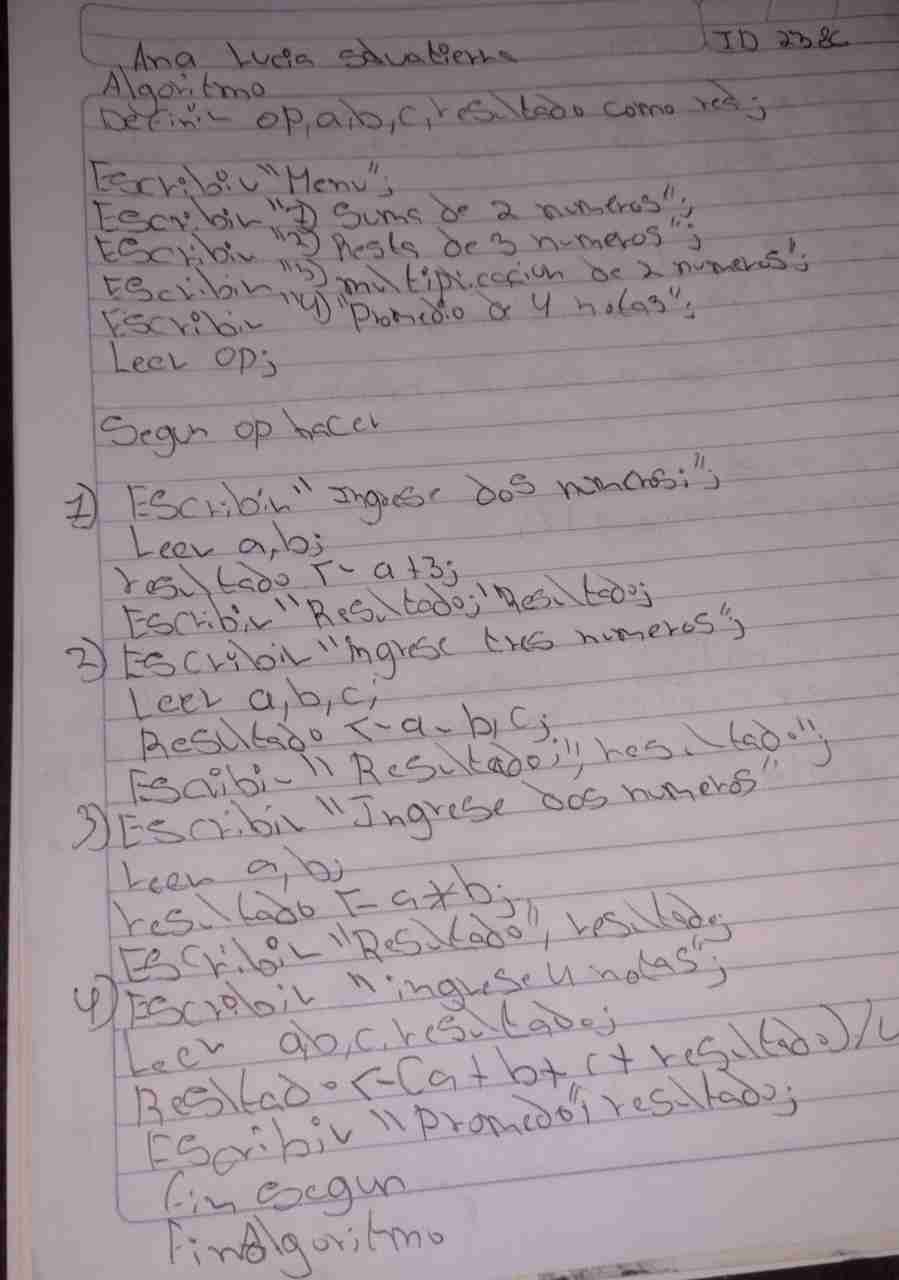 Ana Lucia Salvatierra
ID 238C
Algoritmo
Definir op,a,b,c,resultado como real;
Escribir "Menu";
Escribir "1) Suma de 2 numeros";
Escribir "2) Resta de 3 numeros";
Escribir "3) multiplicacion de 2 numeros";
Escribir "4) Promedio de 4 notas";
Leer op;
Segun op hacer
1) Escribir "Ingrese dos numeros:";
Leer a,b;
resultado <- a+3;
Escribir "Resultado;" Resultado;
2) Escribir "ingrese tres numeros";
Leer a,b,c;
Resultado <- a-b,c;
Escribir "Resultado;", resultado";
3) Escribir "Ingrese dos numeros"
Leer a,b;
resultado <- a*b;
Escribir "Resultado", resultado;
4) Escribir "ingrese 4 notas";
Leer a,b,c,resultado;
Resultado <- (a+b+c+resultado)/4
Escribir "Promedo"; resultado;
fin segun
FinAlgoritmo